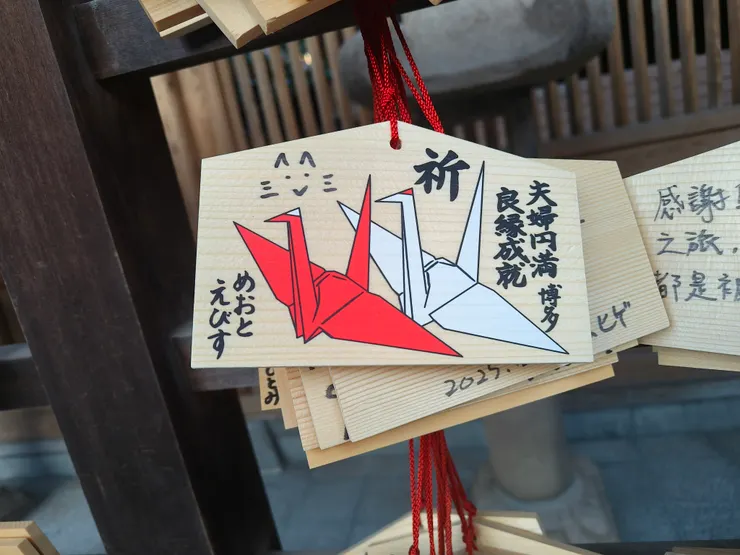 祈
夫婦円満
良縁成就
博多
めおと
えびす
感謝
之旅,
都是
ヒゲ
2025.
とみ